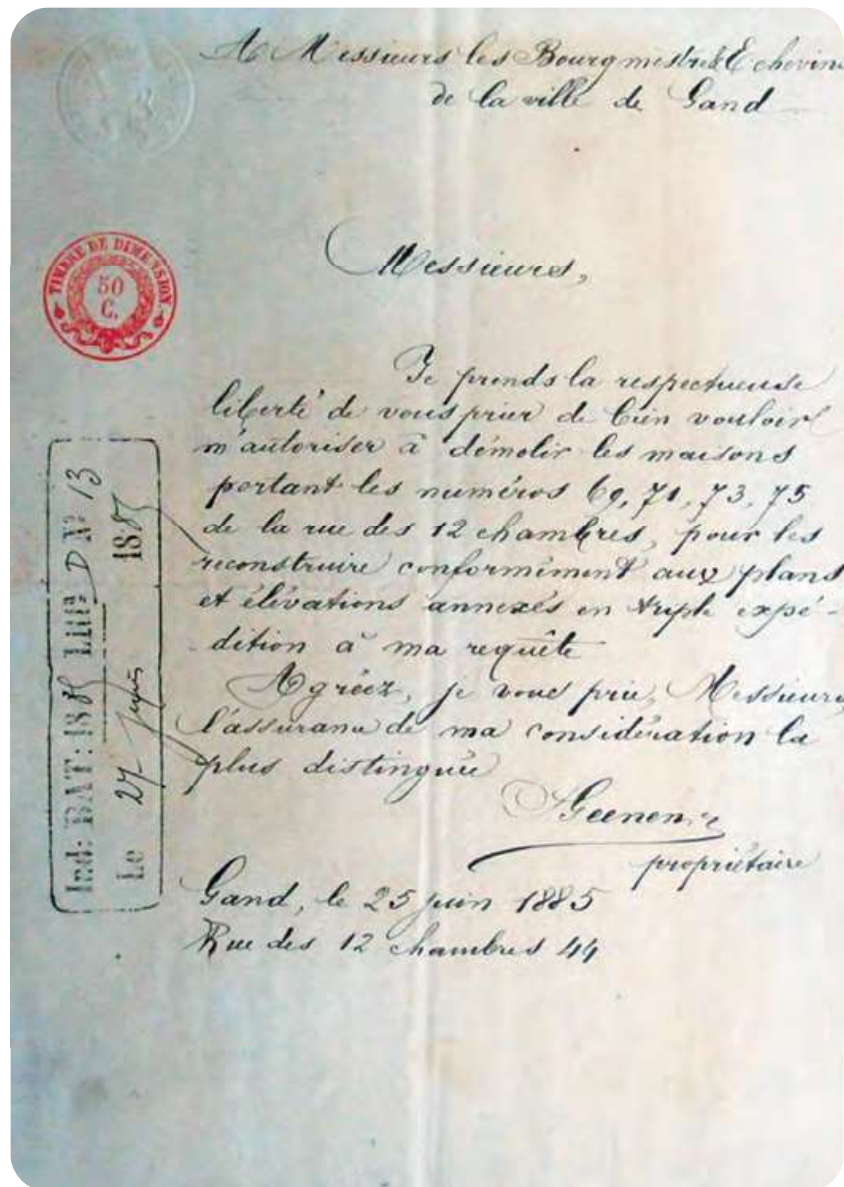 A Messieurs les Bourgmestre & Echevins
de la ville de Gand
Messieurs,
TIMBRE DE DIMENSION
50
C.
Je prends la respectueuse
liberté de vous prier de bien vouloir
m'autoriser à démolir les maisons
portant les numéros 69, 71, 73, 75
de la rue des 12 chambres, pour les
reconstruire conformément aux plans
et élévations annexés en triple expé-
dition à ma requête
Agréez, je vous prie, Messieurs,
l'assurance de ma considération la
plus distinguée
Geenen
propriétaire
Gand, le 25 juin 1885
Rue des 12 chambres 44
Ind: BAT: 1885 Litt. D N° 13
Le 27 juin 1885